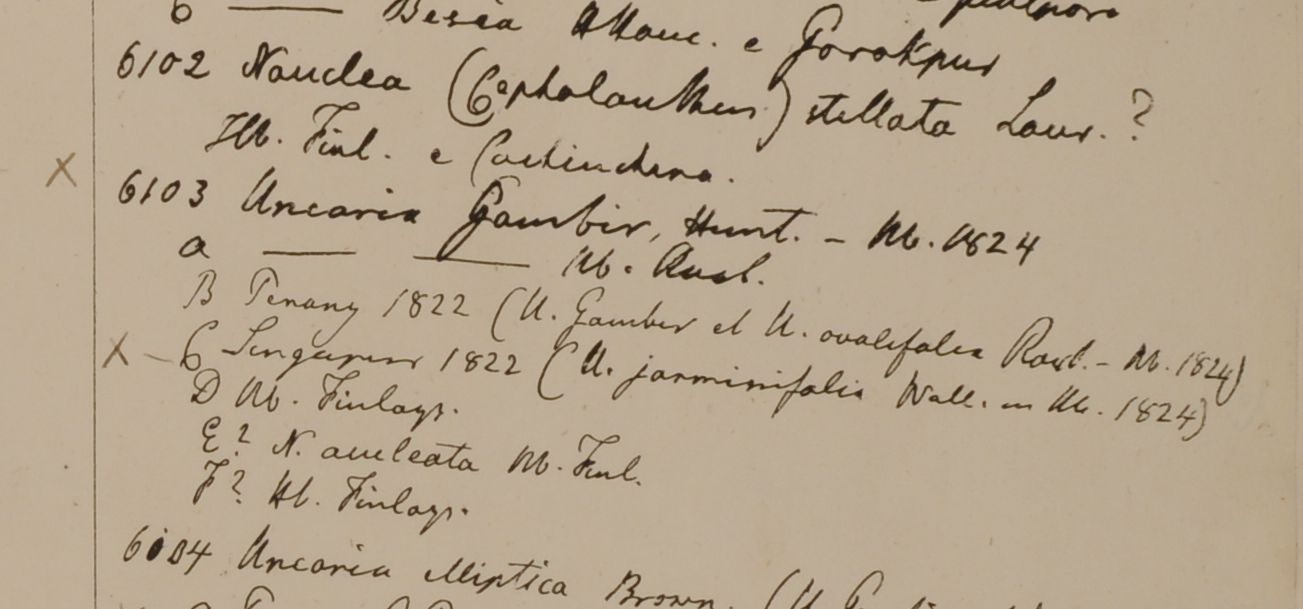 6 —— Besia Ham. e Gorakpur
6102 Nauclea (Cephalanthus) stellata Lour. ?
Hb. Finl. e Cochinchina.
X
6103 Uncaria Gambir, Hunt. – Hb. 1824
a —— —— Hb. Roxb.
B Penang 1822 (U. Gambir et U. ovalifolia Roxb. – Hb. 1824)
X – C Singapur 1822 (U. jasminifolia Wall. in Hb. 1824)
D Hb. Finlays.
E? N. aculeata Hb. Finl.
F? Hb. Finlays.
6104 Uncaria elliptica Brown. (U.